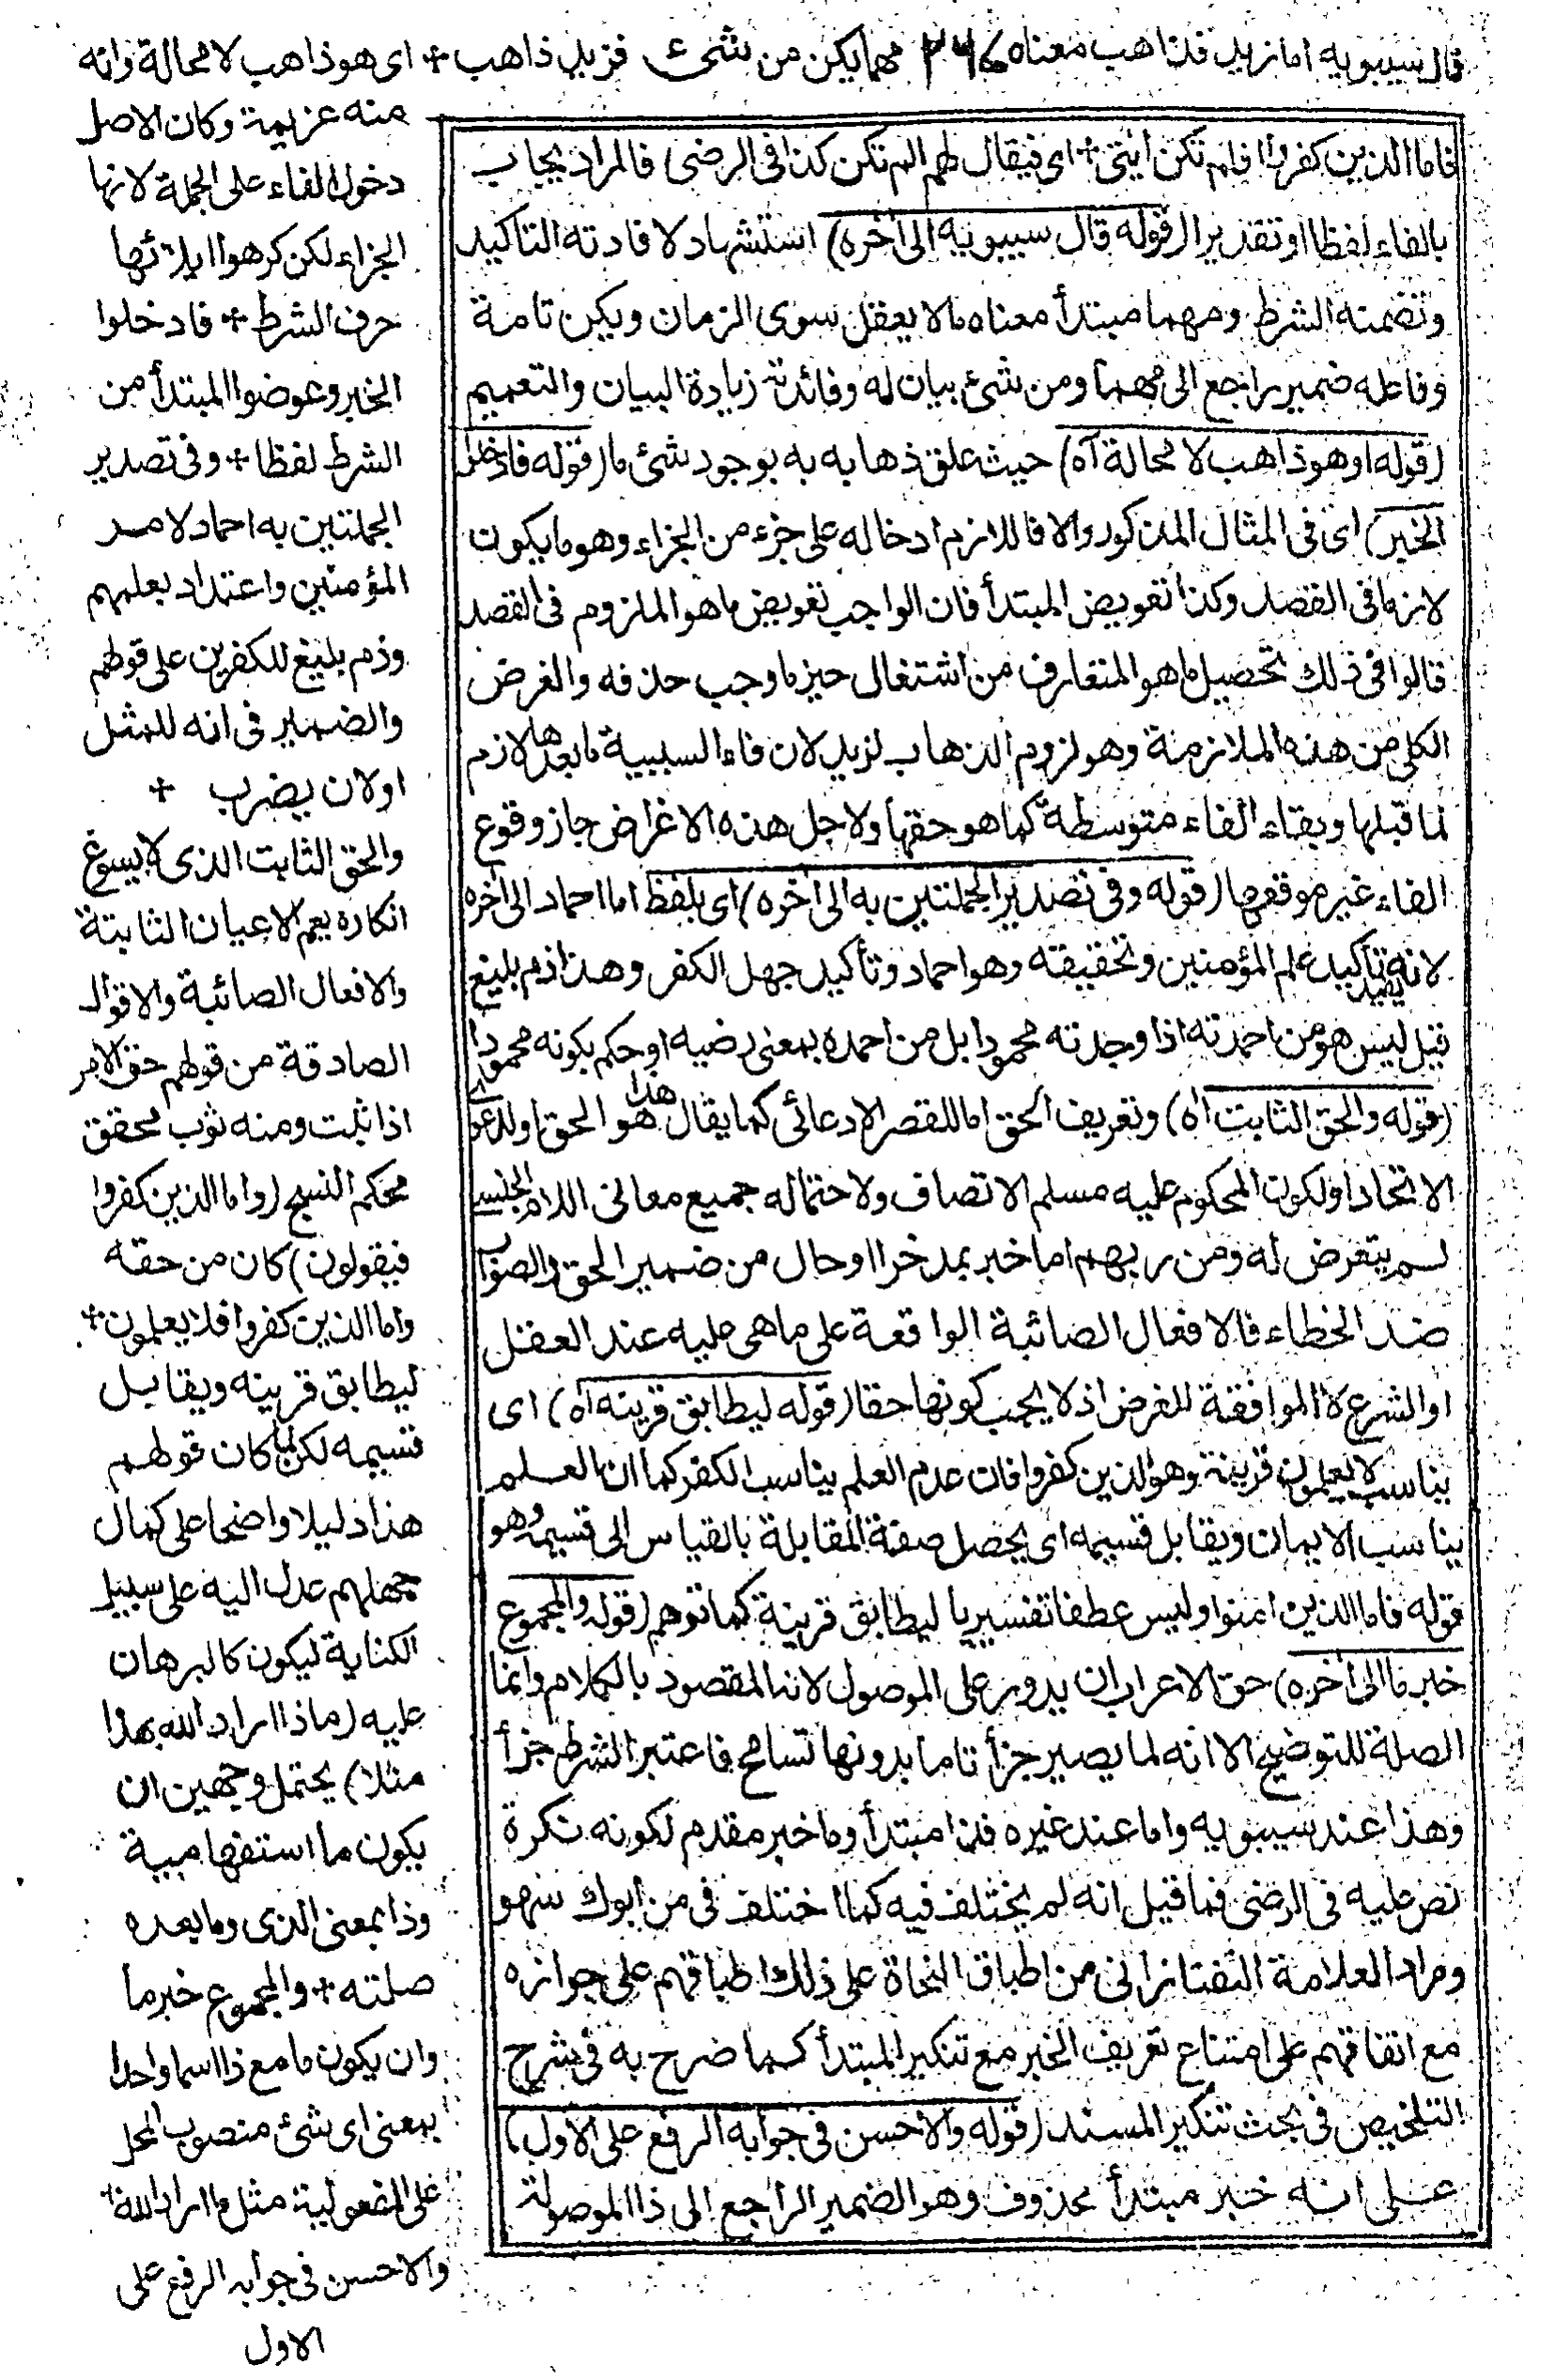 قال سيبويه اما زيد فذاهب معناه ٢٧٦ مهما يكن من شئ فزيد ذاهب + اى هو ذاهب لا محالة وانه
منه عزيمة وكان الاصل
دخول الفاء على الجملة لانها
الجزاء لكن كرهوا ايلائها
حرف الشرط + فادخلوا
الخبر وعوضوا المبتدأ من
الشرط لفظا + وفى تصدير
الجملتين به احماد لامر
المؤمنين واعتداد بعلمهم
وذم بليغ للكفرين على قولهم
والضمير فى انه للمثل
اولان يضرب +
والحق الثابت الذى لا يسوغ
انكاره يعم الاعيان الثابتة
والافعال الصائبة والاقوال
الصادقة من قولهم حق الامر
اذا ثبت ومنه ثوب محقق
محكم النسج (واما الذين كفروا
فيقولون) كان من حقه
واما الذين كفروا فلا يعلمون +
ليطابق قرينه ويقابل
قسيمه لكن لما كان قولهم
هذا دليلا واضحا على كمال
جهلهم عدل اليه على سبيل
الكناية ليكون كالبرهان
عليه (ماذا اراد الله بهذا
مثلا) يحتمل وجهين ان
يكون ما استفهامية
وذا بمعنى الذى وما بعده
صلته + والمجموع خبر ما
وان يكون ما مع ذا اسما واحدا
بمعنى اى شئ منصوب المحل
على المفعولية مثل ما اراد الله +
والاحسن فى جوابه الرفع على
الاول
فاما الذين كفروا افلم تكن ايتى + اى فيقال لهم الم تكن كذا فى الرضى فالمراد يجاب
بالفاء لفظا او تقديرا (قوله قال سيبويه الى اخره) استشهاد لافادته التاكيد
وتضمنه الشرط ومهما مبتدأ معناه ما لا يعقل سوى الزمان ويكن تامة
وفاعله ضمير راجع الى مهما ومن شئ بيان له وفائدته زيادة البيان والتعميم
(قوله او هو ذاهب لا محالة اه) حيث علق ذهابه به بوجود شئ ما (قوله فادخلوا
الخبر) اى فى المثال المذكور والا فاللازم ادخاله على جزء من الجزاء وهو ما يكون
لازما فى القصد وكذا تعويض المبتدأ فان الواجب تعويض ما هو الملزوم فى القصد
قالوا فى ذلك تحصيل ما هو المتعارف من اشتغال حيز ما وجب حذفه والغرض
الكلى من هذه الملازمة وهو لزوم الذهاب لزيد لان فاء السببية ما بعدها لازم
لما قبلها وبقاء الفاء متوسطة كما هو حقها ولاجل هذه الاغراض جاز وقوع
الفاء غير موقعها (قوله وفى تصدير الجملتين به الى اخره) اى بلفظ اما احماد الى اخره
لانه يفيد تاكيد علم المؤمنين وتحقيقه وهو احماد وتأكيد جهل الكفر وهذا ذم بليغ
قيل ليس هو من احمدته اذا وجدته محمودا بل من احمده بمعنى رضيه او حكم بكونه محمودا
(قوله والحق الثابت اه) وتعريف الحق اما للقصر الادعائى كما يقال هذا هو الحق او لدعوى
الاتحاد او لكون المحكوم عليه مسلم الاتصاف ولاحتماله جميع معانى اللام الجنسى
لم يتعرض له ومن ربهم اما خبر بعد خبر او حال من ضمير الحق والصواب
ضد الخطاء فالافعال الصائبة الواقعة على ما هى عليه عند العقل
او الشرع لا الموافقة للغرض اذ لا يجب كونها حقا (قوله ليطابق قرينه اه) اى
يناسب لا يعلمون قرينة وهو الذين كفروا فان عدم العلم يناسب الكفر كما ان العلم
يناسب الايمان ويقابل قسيمه اى يحصل صفة المقابلة بالقياس الى قسيمه وهو
قوله فاما الذين امنوا وليس عطفا تفسيريا ليطابق قرينة كما توهم (قوله والمجموع
خبر ما الى اخره) حق الاعراب ان يدور على الموصول لانه المقصود بالكلام وانما
الصلة للتوضيح الا انه لما يصير جزأ تاما بدونها تسامح فاعتبر الشرط جزأ
وهذا عند سيبويه واما عند غيره فذا مبتدأ وما خبر مقدم لكونه نكرة
نص عليه فى الرضى فما قيل انه لم يختلف فيه كما اختلف فى من ابوك سهو
ومراد العلامة التفتازانى من اطباق النحاة على ذلك اطباقهم على جوازه
مع اتفاقهم على امتناع تعريف الخبر مع تنكير المبتدأ كما صرح به فى شرح
التلخيص فى بحث تنكير المسند (قوله والاحسن فى جوابه الرفع على الاول)
على انه خبر مبتدأ محذوف وهو الضمير الراجع الى ذا الموصولة